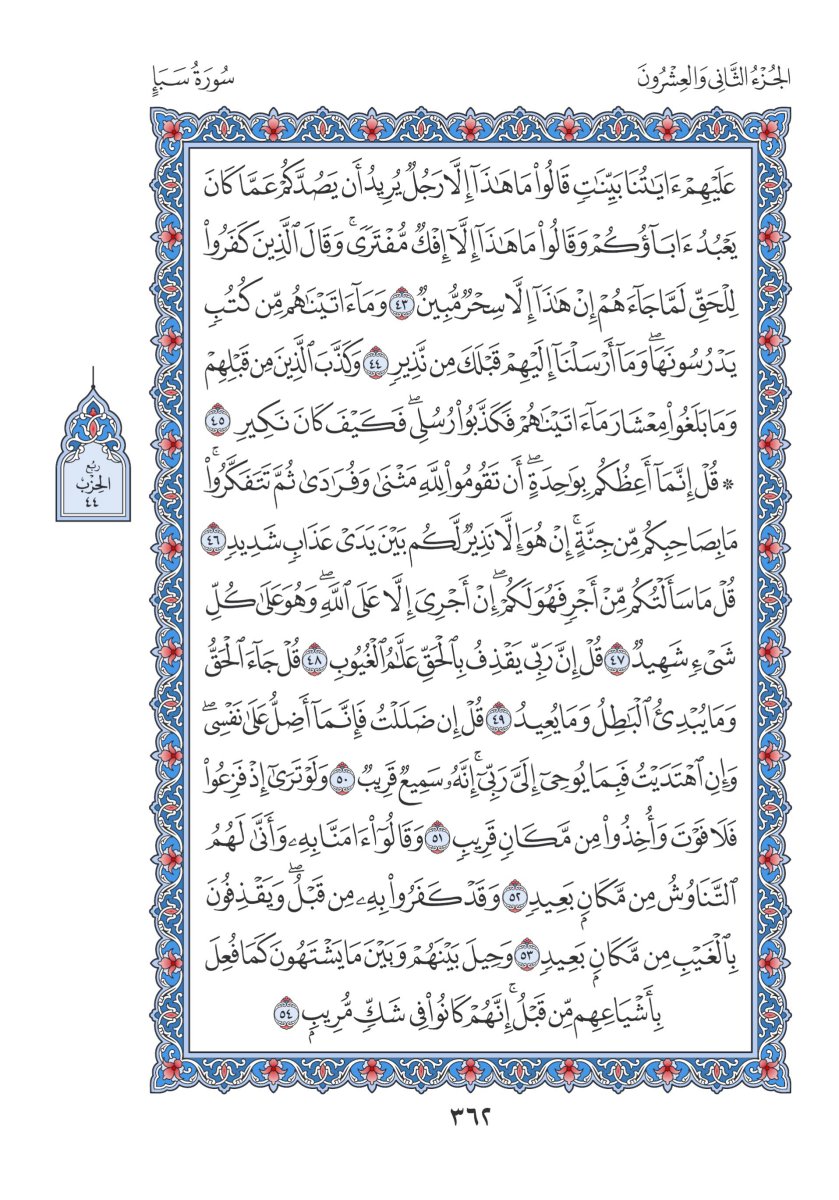 الجُزْءُ الثَّانِي وَالعِشْرُونَ
سُورَةُ سَبَإٍ
عَلَيْهِمْ ءَايَٰتُنَا بَيِّنَٰتٖ قَالُواْ مَا هَٰذَآ إِلَّا رَجُلٞ يُرِيدُ أَن يَصُدَّكُمۡ عَمَّا كَانَ
يَعۡبُدُ ءَابَآؤُكُمۡ وَقَالُواْ مَا هَٰذَآ إِلَّآ إِفۡكٞ مُّفۡتَرٗىۚ وَقَالَ ٱلَّذِينَ كَفَرُواْ
لِلۡحَقِّ لَمَّا جَآءَهُمۡ إِنۡ هَٰذَآ إِلَّا سِحۡرٞ مُّبِينٞ ٤٣ وَمَآ ءَاتَيۡنَٰهُم مِّن كُتُبٖ
يَدۡرُسُونَهَاۖ وَمَآ أَرۡسَلۡنَآ إِلَيۡهِمۡ قَبۡلَكَ مِن نَّذِيرٖ ٤٤ وَكَذَّبَ ٱلَّذِينَ مِن قَبۡلِهِمۡ
وَمَا بَلَغُواْ مِعۡشَارَ مَآ ءَاتَيۡنَٰهُمۡ فَكَذَّبُواْ رُسُلِيۖ فَكَيۡفَ كَانَ نَكِيرِ ٤٥
۞ قُلۡ إِنَّمَآ أَعِظُكُم بِوَٰحِدَةٍۖ أَن تَقُومُواْ لِلَّهِ مَثۡنَىٰ وَفُرَٰدَىٰ ثُمَّ تَتَفَكَّرُواْۚ
مَا بِصَاحِبِكُم مِّن جِنَّةٍۚ إِنۡ هُوَ إِلَّا نَذِيرٞ لَّكُم بَيۡنَ يَدَيۡ عَذَابٖ شَدِيدٖ ٤٦
قُلۡ مَا سَأَلۡتُكُم مِّنۡ أَجۡرٖ فَهُوَ لَكُمۡۖ إِنۡ أَجۡرِيَ إِلَّا عَلَى ٱللَّهِۖ وَهُوَ عَلَىٰ كُلِّ
شَيۡءٖ شَهِيدٞ ٤٧ قُلۡ إِنَّ رَبِّي يَقۡذِفُ بِٱلۡحَقِّ عَلَّٰمُ ٱلۡغُيُوبِ ٤٨ قُلۡ جَآءَ ٱلۡحَقُّ
وَمَا يُبۡدِئُ ٱلۡبَٰطِلُ وَمَا يُعِيدُ ٤٩ قُلۡ إِن ضَلَلۡتُ فَإِنَّمَآ أَضِلُّ عَلَىٰ نَفۡسِيۖ
وَإِنِ ٱهۡتَدَيۡتُ فَبِمَا يُوحِيٓ إِلَيَّ رَبِّيٓۚ إِنَّهُۥ سَمِيعٞ قَرِيبٞ ٥٠ وَلَوۡ تَرَىٰٓ إِذۡ فَزِعُواْ
فَلَا فَوۡتَ وَأُخِذُواْ مِن مَّكَانٖ قَرِيبٖ ٥١ وَقَالُوٓاْ ءَامَنَّا بِهِۦ وَأَنَّىٰ لَهُمُ
ٱلتَّنَاوُشُ مِن مَّكَانِۭ بَعِيدٖ ٥٢ وَقَدۡ كَفَرُواْ بِهِۦ مِن قَبۡلُۖ وَيَقۡذِفُونَ
بِٱلۡغَيۡبِ مِن مَّكَانِۭ بَعِيدٖ ٥٣ وَحِيلَ بَيۡنَهُمۡ وَبَيۡنَ مَا يَشۡتَهُونَ كَمَا فُعِلَ
بِأَشۡيَاعِهِم مِّن قَبۡلُۚ إِنَّهُمۡ كَانُواْ فِي شَكّٖ مُّرِيبِۭ ٥٤
رُبُع
الحِزْبُ
٤٤
٣٦٢